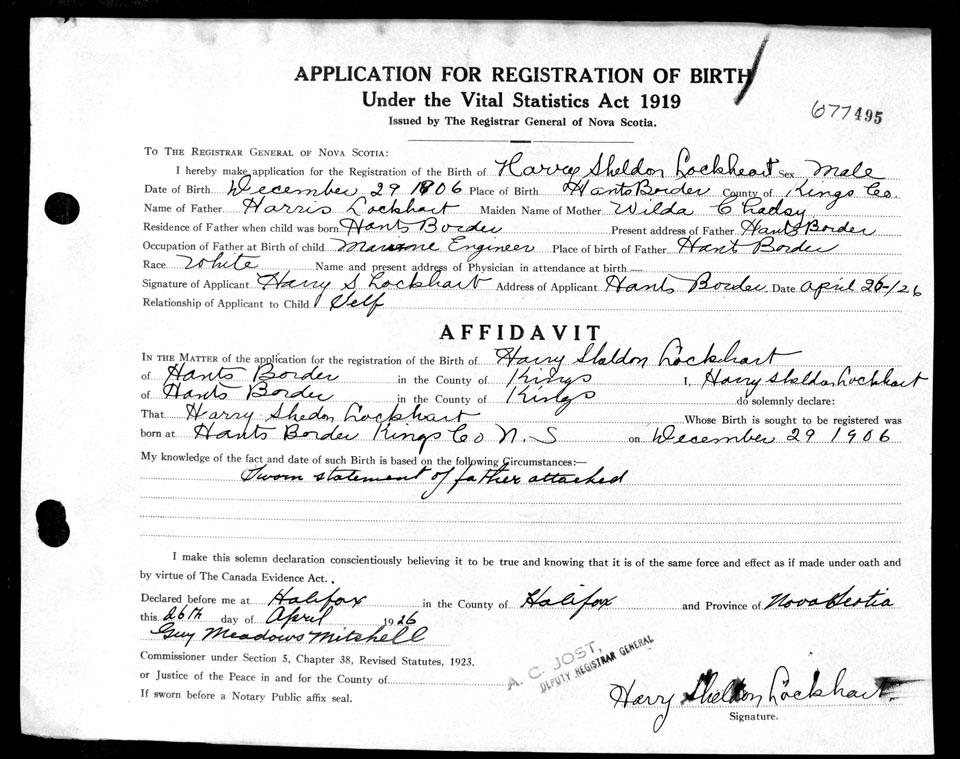 APPLICATION FOR REGISTRATION OF BIRTH
Under the Vital Statistics Act 1919
Issued by The Registrar General of Nova Scotia.
677495
TO THE REGISTRAR GENERAL OF NOVA SCOTIA:
I hereby make application for the Registration of the Birth of Harry Sheldon Lockheart Sex Male
Date of Birth December 29 1906 Place of Birth Hants Border County of Kings Co.
Name of Father Harris Lockhart Maiden Name of Mother Wilda Chadsy
Residence of Father when child was born Hants Border Present address of Father Hants Border
Occupation of Father at Birth of child Engineer Place of birth of Father Hant Border
Race White Name and present address of Physician in attendance at birth —
Signature of Applicant Harry S Lockhart Address of Applicant Hants Border Date April 26-/26
Relationship of Applicant to Child Self
AFFIDAVIT
IN THE MATTER of the application for the registration of the Birth of Harry Sheldon Lockhart
of Hants Border in the County of Kings I, Harry Sheldon Lockhart
of Hants Border in the County of Kings do solemnly declare:
That Harry Shedon Lockhart Whose Birth is sought to be registered was
born at Hants Border Kings Co N. S on December 29 1906
My knowledge of the fact and date of such Birth is based on the following Circumstances:—
Sworn statement of father attached
I make this solemn declaration conscientiously believing it to be true and knowing that it is of the same force and effect as if made under oath and
by virtue of The Canada Evidence Act.
Declared before me at Halifax in the County of Halifax and Province of Nova Scotia
this 26th day of April 1926
Guy Meadows Mitchell
Commissioner under Section 5, Chapter 38, Revised Statutes, 1923.
or Justice of the Peace in and for the County of
If sworn before a Notary Public affix seal.
A. C. JOST,
DEPUTY REGISTRAR GENERAL
Harry Sheldon Lockhart.
Signature.